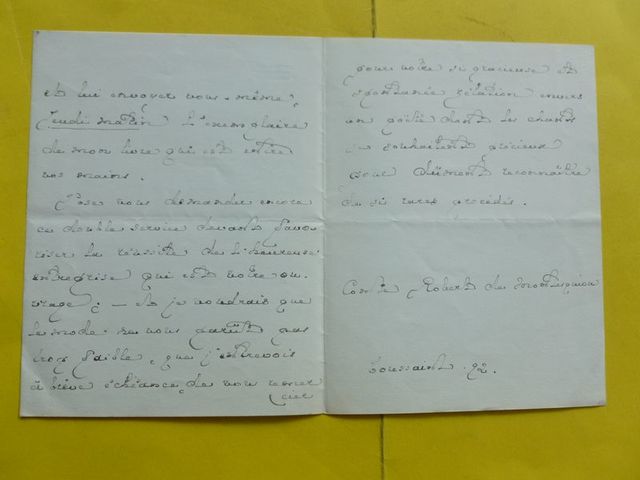 et lui envoyer vous-même,
Jeudi matin l'exemplaire
de mon livre qui est entre
vos mains.
J'ose vous demander encore
ce double service devant favo
riser la réussite de l'heureuse
entreprise qui est votre ou-
vrage ; — et je voudrais que
le mode me vous parût pas
trop faible, que j'entrevois
à brève échéance, de vous remer
cier
pour votre si gracieuse et
spontanée relation envers
un poète dont les chants
se souhaitent précieux
pour dûment reconnaître
de si rares procédés.
Comte Robert de Montesquiou
Toussaint. 92.